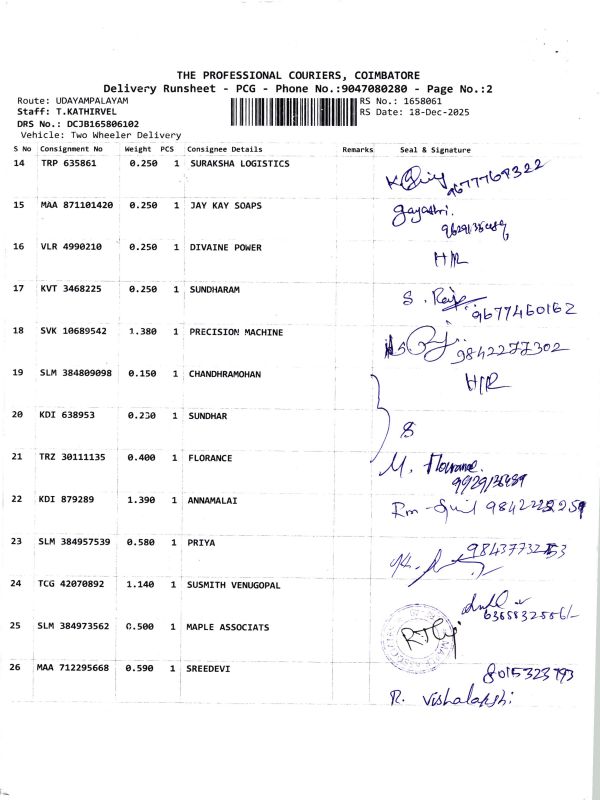 THE PROFESSIONAL COURIERS, COIMBATORE
Delivery Runsheet - PCG - Phone No.:9047080280 - Page No.:2
Route: UDAYAMPALAYAM
RS No.: 1658061
Staff: T.KATHIRVEL
RS Date: 18-Dec-2025
DRS No.: DCJB165806102
Vehicle: Two Wheeler Delivery
S No Consignment No Weight PCS Consignee Details Remarks Seal & Signature
14 TRP 635861 0.250 1 SURAKSHA LOGISTICS
9677768322
15 MAA 871101420 0.250 1 JAY KAY SOAPS gayathri.
16 VLR 4990210 0.250 1 DIVAINE POWER H/R
17 KVT 3468225 0.250 1 SUNDHARAM S. Raja
9677460162
18 SVK 10689542 1.380 1 PRECISION MACHINE
9842277302
19 SLM 384809098 0.150 1 CHANDHRAMOHAN H/R
20 KDI 638953 0.230 1 SUNDHAR
21 TRZ 30111135 0.400 1 FLORANCE M. Florance.
22 KDI 879289 1.390 1 ANNAMALAI
23 SLM 384957539 0.580 1 PRIYA
24 TCG 42070892 1.140 1 SUSMITH VENUGOPAL
25 SLM 384973562 0.500 1 MAPLE ASSOCIATS
26 MAA 712295668 0.590 1 SREEDEVI 8015323793
R. Vishalakshi